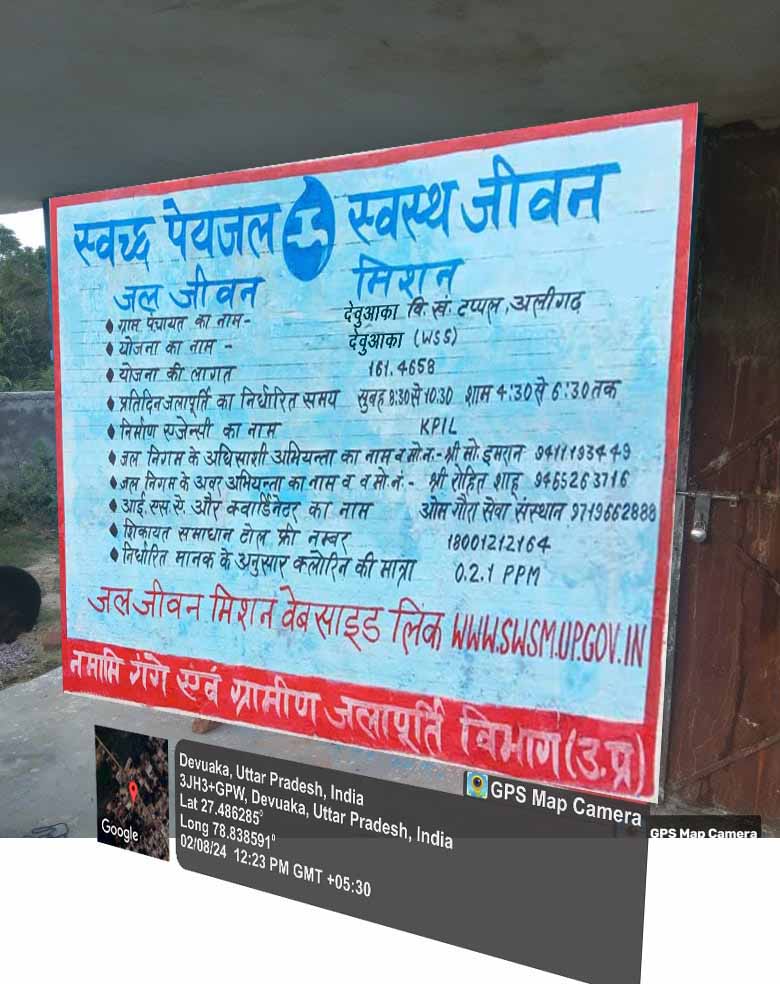 स्वच्छ पेयजल स्वस्थ जीवन
जल जीवन मिशन
ग्राम पंचायत का नाम- देवुआका वि.खं. टप्पल, अलीगढ़
योजना का नाम - देवुआका (WSS)
योजना की लागत 161.4658
प्रतिदिन जलापूर्ति का निर्धारित समय सुबह 8:30 से 10:30 शाम 4:30 से 6:30 तक
निर्माण एजेन्सी का नाम KPIL
जल निगम के अधिसाशी अभियन्ता का नाम व मो.न.- श्री मो. इमरान 9411193449
जल निगम के अवर अभियन्ता का नाम व व मो.नं.- श्री रोहित शाहू 9465263716
आई.एस.ए. और क्वार्डिनेटर का नाम ओम गौरा सेवा संस्थान 9719662888
शिकायत समाधान टोल फ्री नम्बर 18001212164
निर्धारित मानक के अनुसार क्लोरिन की मात्रा 0.2.1 PPM
जल जीवन मिशन वेबसाइड लिंक WWW.SWSM.UP.GOV.IN
नमामि गंगे एवं ग्रामीण जलापूर्ति विभाग (उ.प्र)
GPS Map Camera
Devuaka, Uttar Pradesh, India
3JH3+GPW, Devuaka, Uttar Pradesh, India
Lat 27.486285°
Long 78.838591°
02/08/24 12:23 PM GMT +05:30
Google
GPS Map Camera